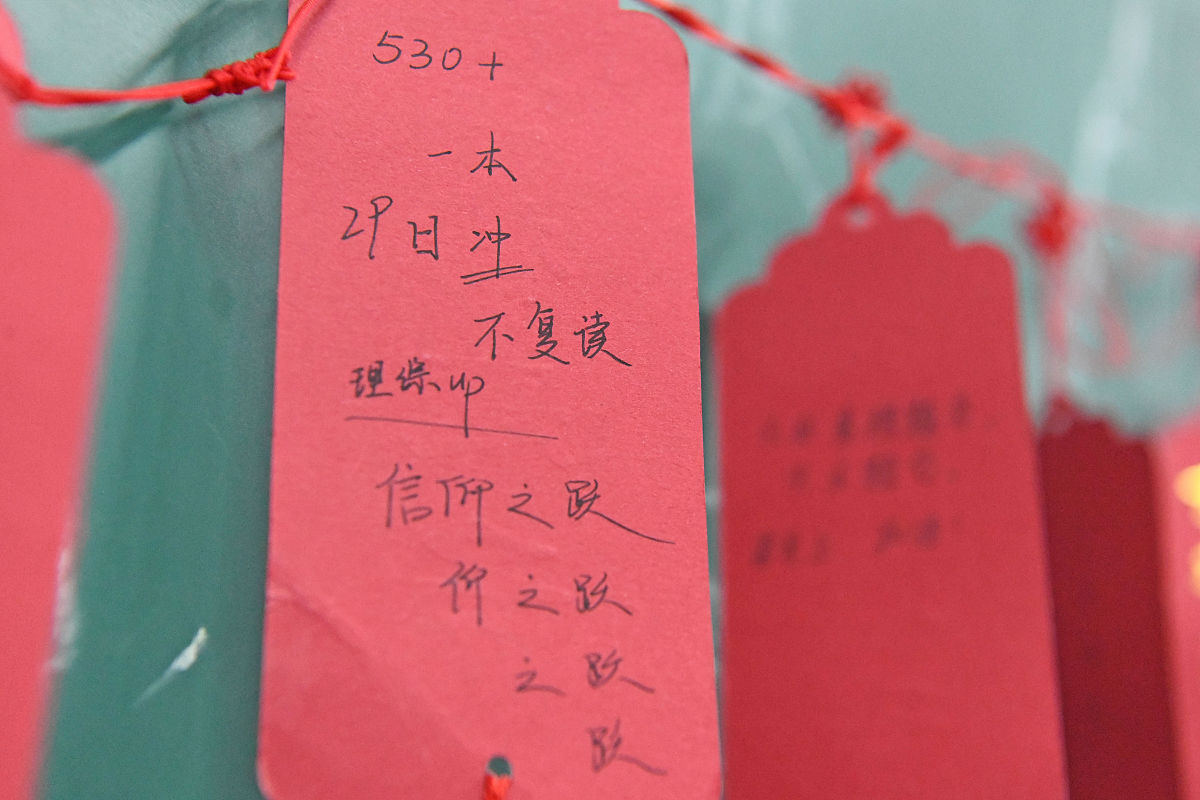 530+
一本
29日 冲
不复读
理综up
信仰之跃
仰之跃
之跃
跃